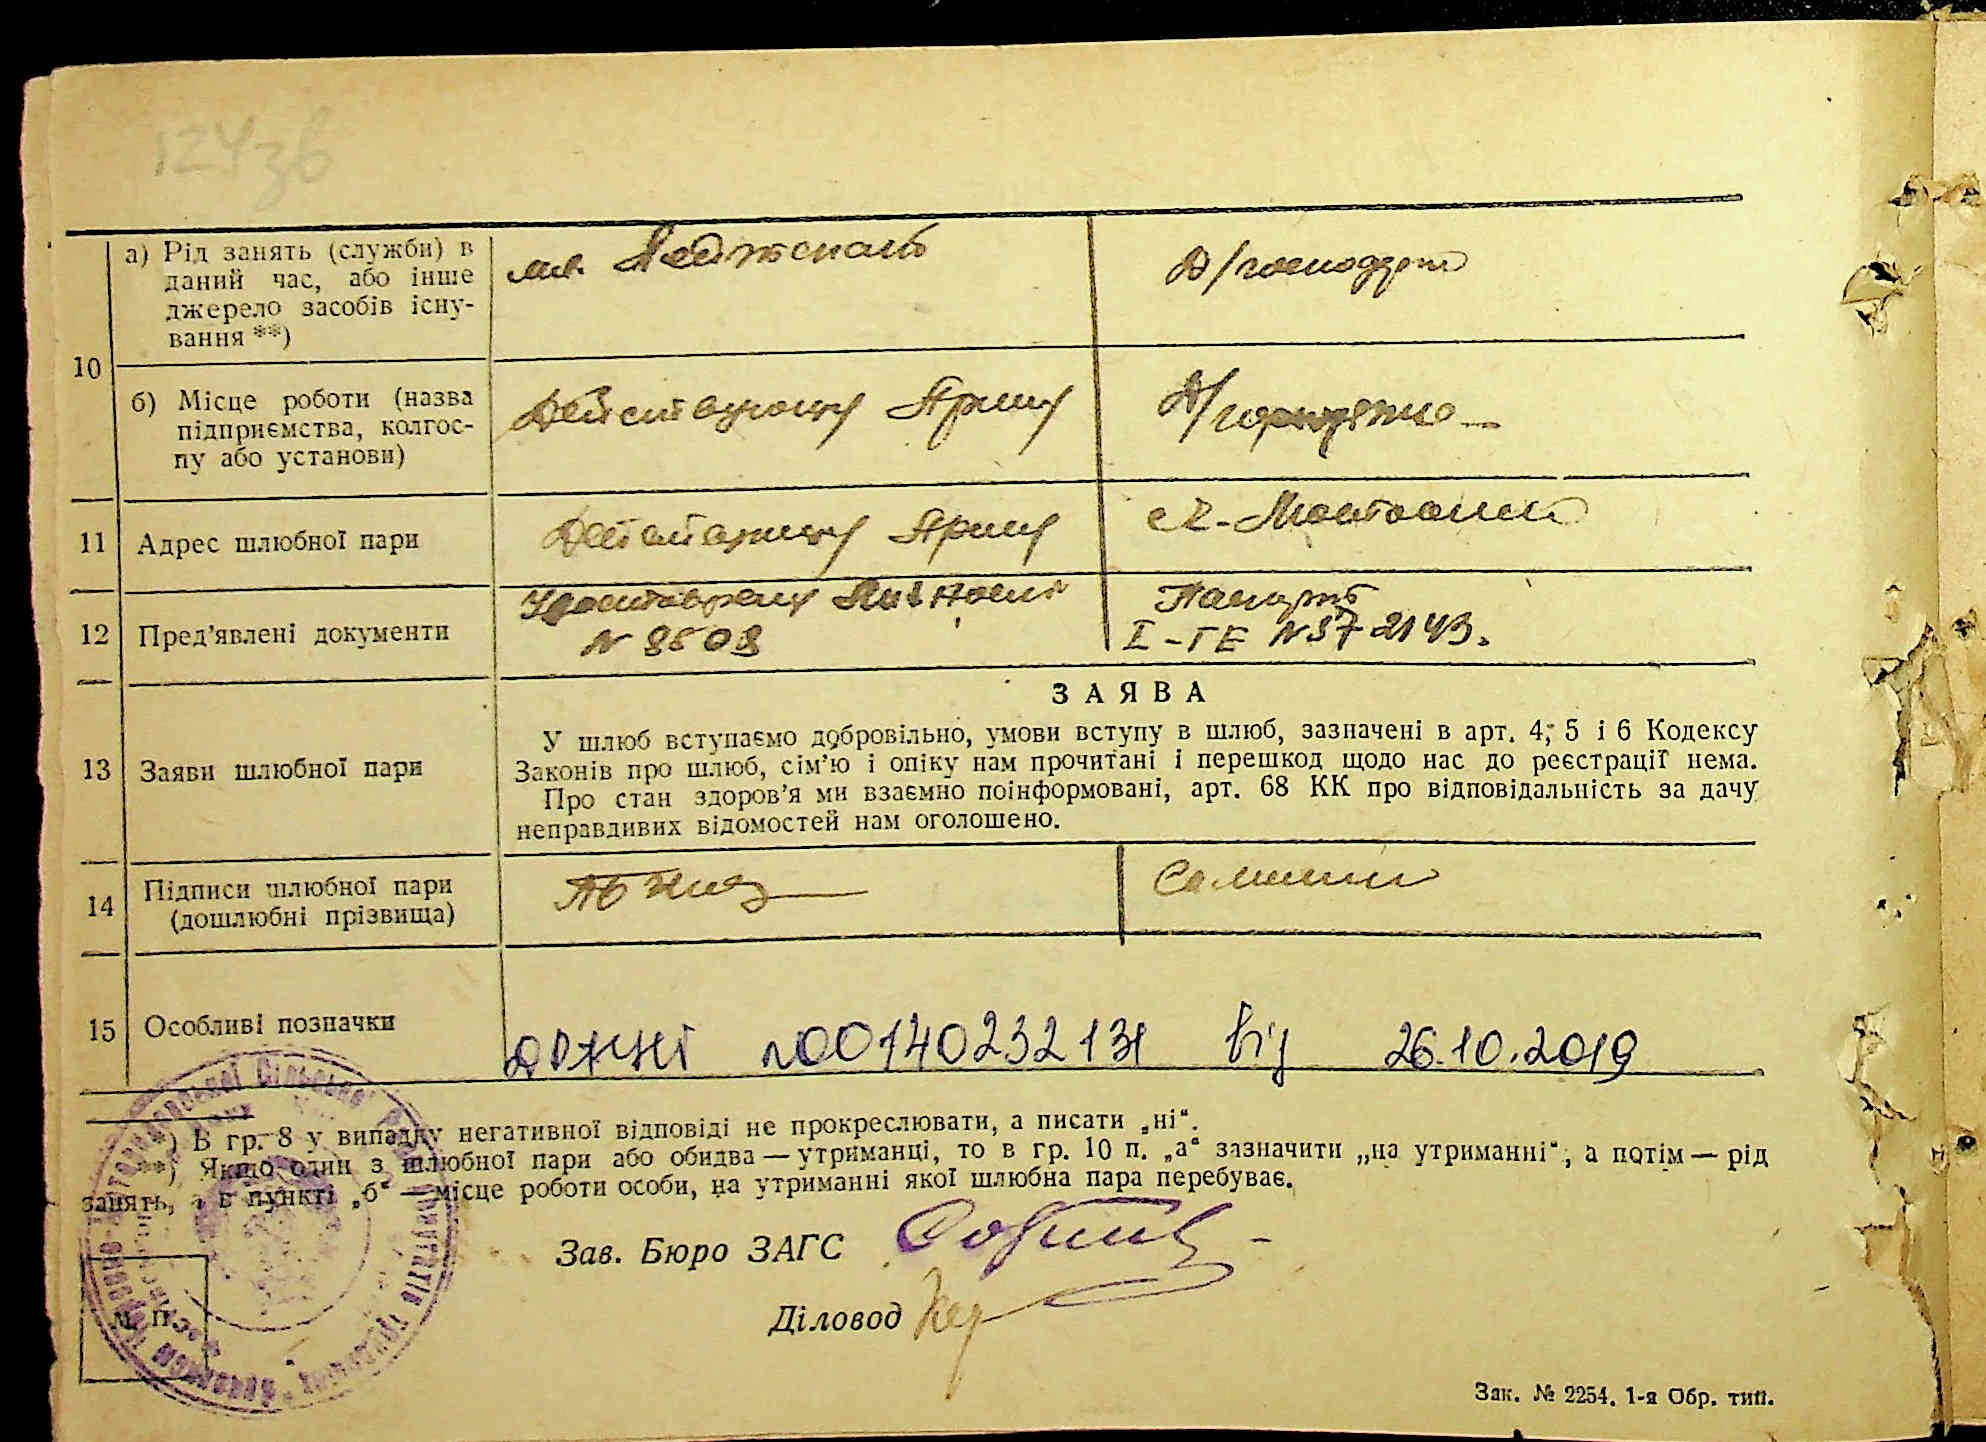 124зв
10
а) Рід занять (служби) в
даний час, або інше
джерело засобів існу-
вання **)
мл. Лейтенант
Д/господарка
б) Місце роботи (назва
підприємства, колгос-
пу або установи)
Действующу Армиу
Д/господарка
11 Адрес шлюбної пари
Действующу Армиу
12 Пред'явлені документи
№ 8508
Паспорт
I-ГЕ № 372143.
ЗАЯВА
13 Заяви шлюбної пари
У шлюб вступаємо добровільно, умови вступу в шлюб, зазначені в арт. 4, 5 і 6 Кодексу
Законів про шлюб, сім'ю і опіку нам прочитані і перешкод щодо нас до реєстрації нема.
Про стан здоров'я ми взаємно поінформовані, арт. 68 КК про відповідальність за дачу
неправдивих відомостей нам оголошено.
14 Підписи шлюбної пари
(дошлюбні прізвища)
15 Особливі позначки
№00140232131 від 26.10.2019
*) В гр. 8 у випадку негативної відповіді не прокреслювати, а писати „ні“.
**) Якщо один з шлюбної пари або обидва — утриманці, то в гр. 10 п. „а“ зазначити „на утриманні“, а потім — рід
занять, а в пункті „б“ — місце роботи особи, на утриманні якої шлюбна пара перебуває.
Зав. Бюро ЗАГС
Діловод
М. П.
Зак. № 2254. 1-я Обр. тип.